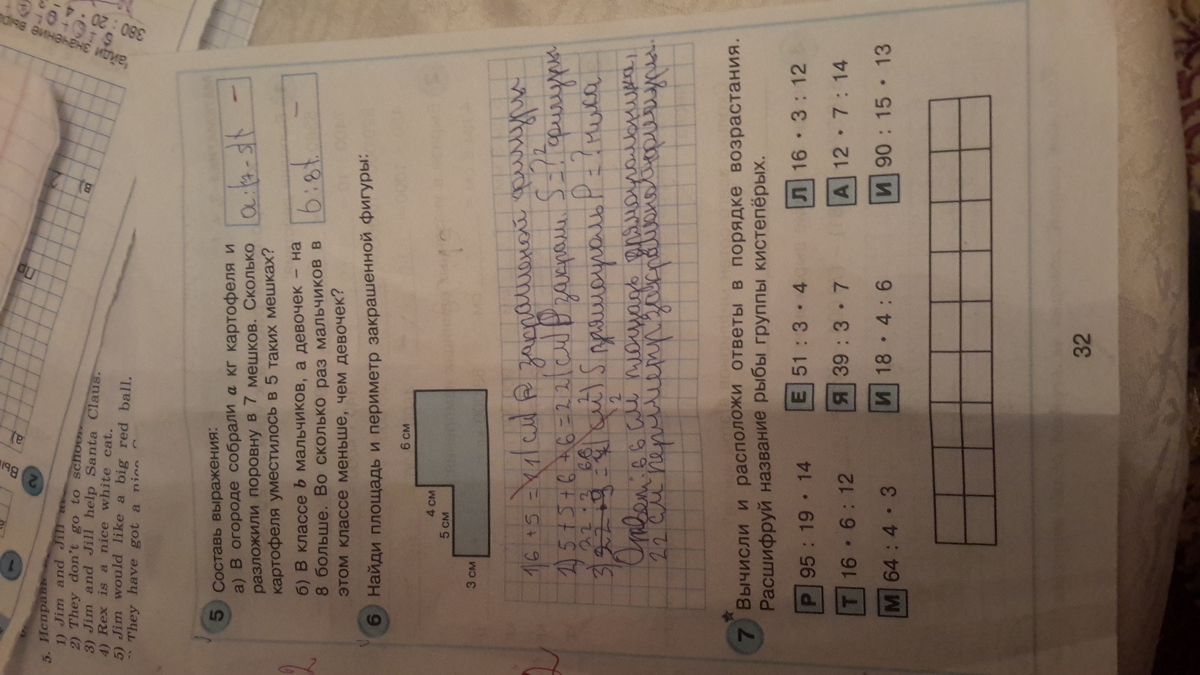 380 : 20 · 4
5. Исправь
1) Jim and Jill
2) They don't go to school
3) Jim and Jill help Santa Claus.
4) Rex is a nice white cat.
5) Jim would like a big red ball.
They have got a nice
1
2
в)
5 Составь выражения:
а) В огороде собрали a кг картофеля и
разложили поровну в 7 мешков. Сколько
картофеля уместилось в 5 таких мешках?
a:(7-5)
б) В классе b мальчиков, а девочек – на
8 больше. Во сколько раз мальчиков в
этом классе меньше, чем девочек?
b:8
6 Найди площадь и периметр закрашенной фигуры:
6 см
4 см
5 см
3 см
1) 6+5=11(см) P
фигуры
2) 5+5+6+6=22(см) P закраш. S=?? фигуры
22·3 66
3) S прямоуголь P=?
Ответ: 66 см площадь прямоугольника,
22 см периметр закрашеной фигуры.
7* Вычисли и расположи ответы в порядке возрастания.
Расшифруй название рыбы группы кистепёрых.
Р 95 : 19 • 14
Е 51 : 3 • 4
Л 16 • 3 : 12
Т 16 • 6 : 12
Я 39 : 3 • 7
А 12 • 7 : 14
М 64 : 4 • 3
И 18 • 4 : 6
И 90 : 15 • 13
32